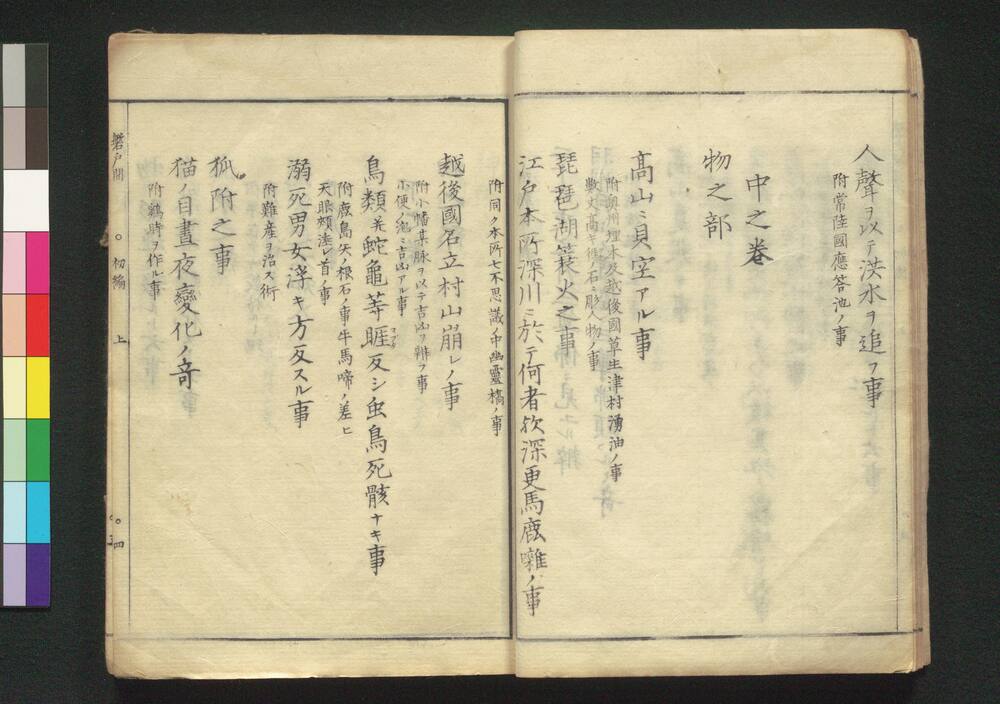 人聲ヲ以テ洪水ヲ追フ事
附常陸國應答池ノ事
中之卷
物之部
高山ニ貝空アル事
附奥州埋木及越後國草生津村湧油ノ事
數丈高キ所ノ石ニ彫人物ノ事
琵琶湖簑火之事
江戸本所深川ニ於テ何者欤深更馬鹿囃ノ事
附同ク本所七不思議ノ中幽靈橋ノ事
越後國名立村山崩レノ事
附小幡某脉ヲ以テ吉凶ヲ辨フ事
小便ノ泡ニ吉凶アル事
鳥類并蛇龜等睚反シ虫鳥死骸ナキ事
附鹿島矢ノ根石ノ事牛馬啼ノ差ヒ
天眼頬法レ首ノ事
溺死男女浮キ方反スル事
附難産ヲ治ス術
狐附之事
猫ノ目晝夜變化ノ奇
附鷄時ヲ作ル事
磐戸開
○初編
上
○四